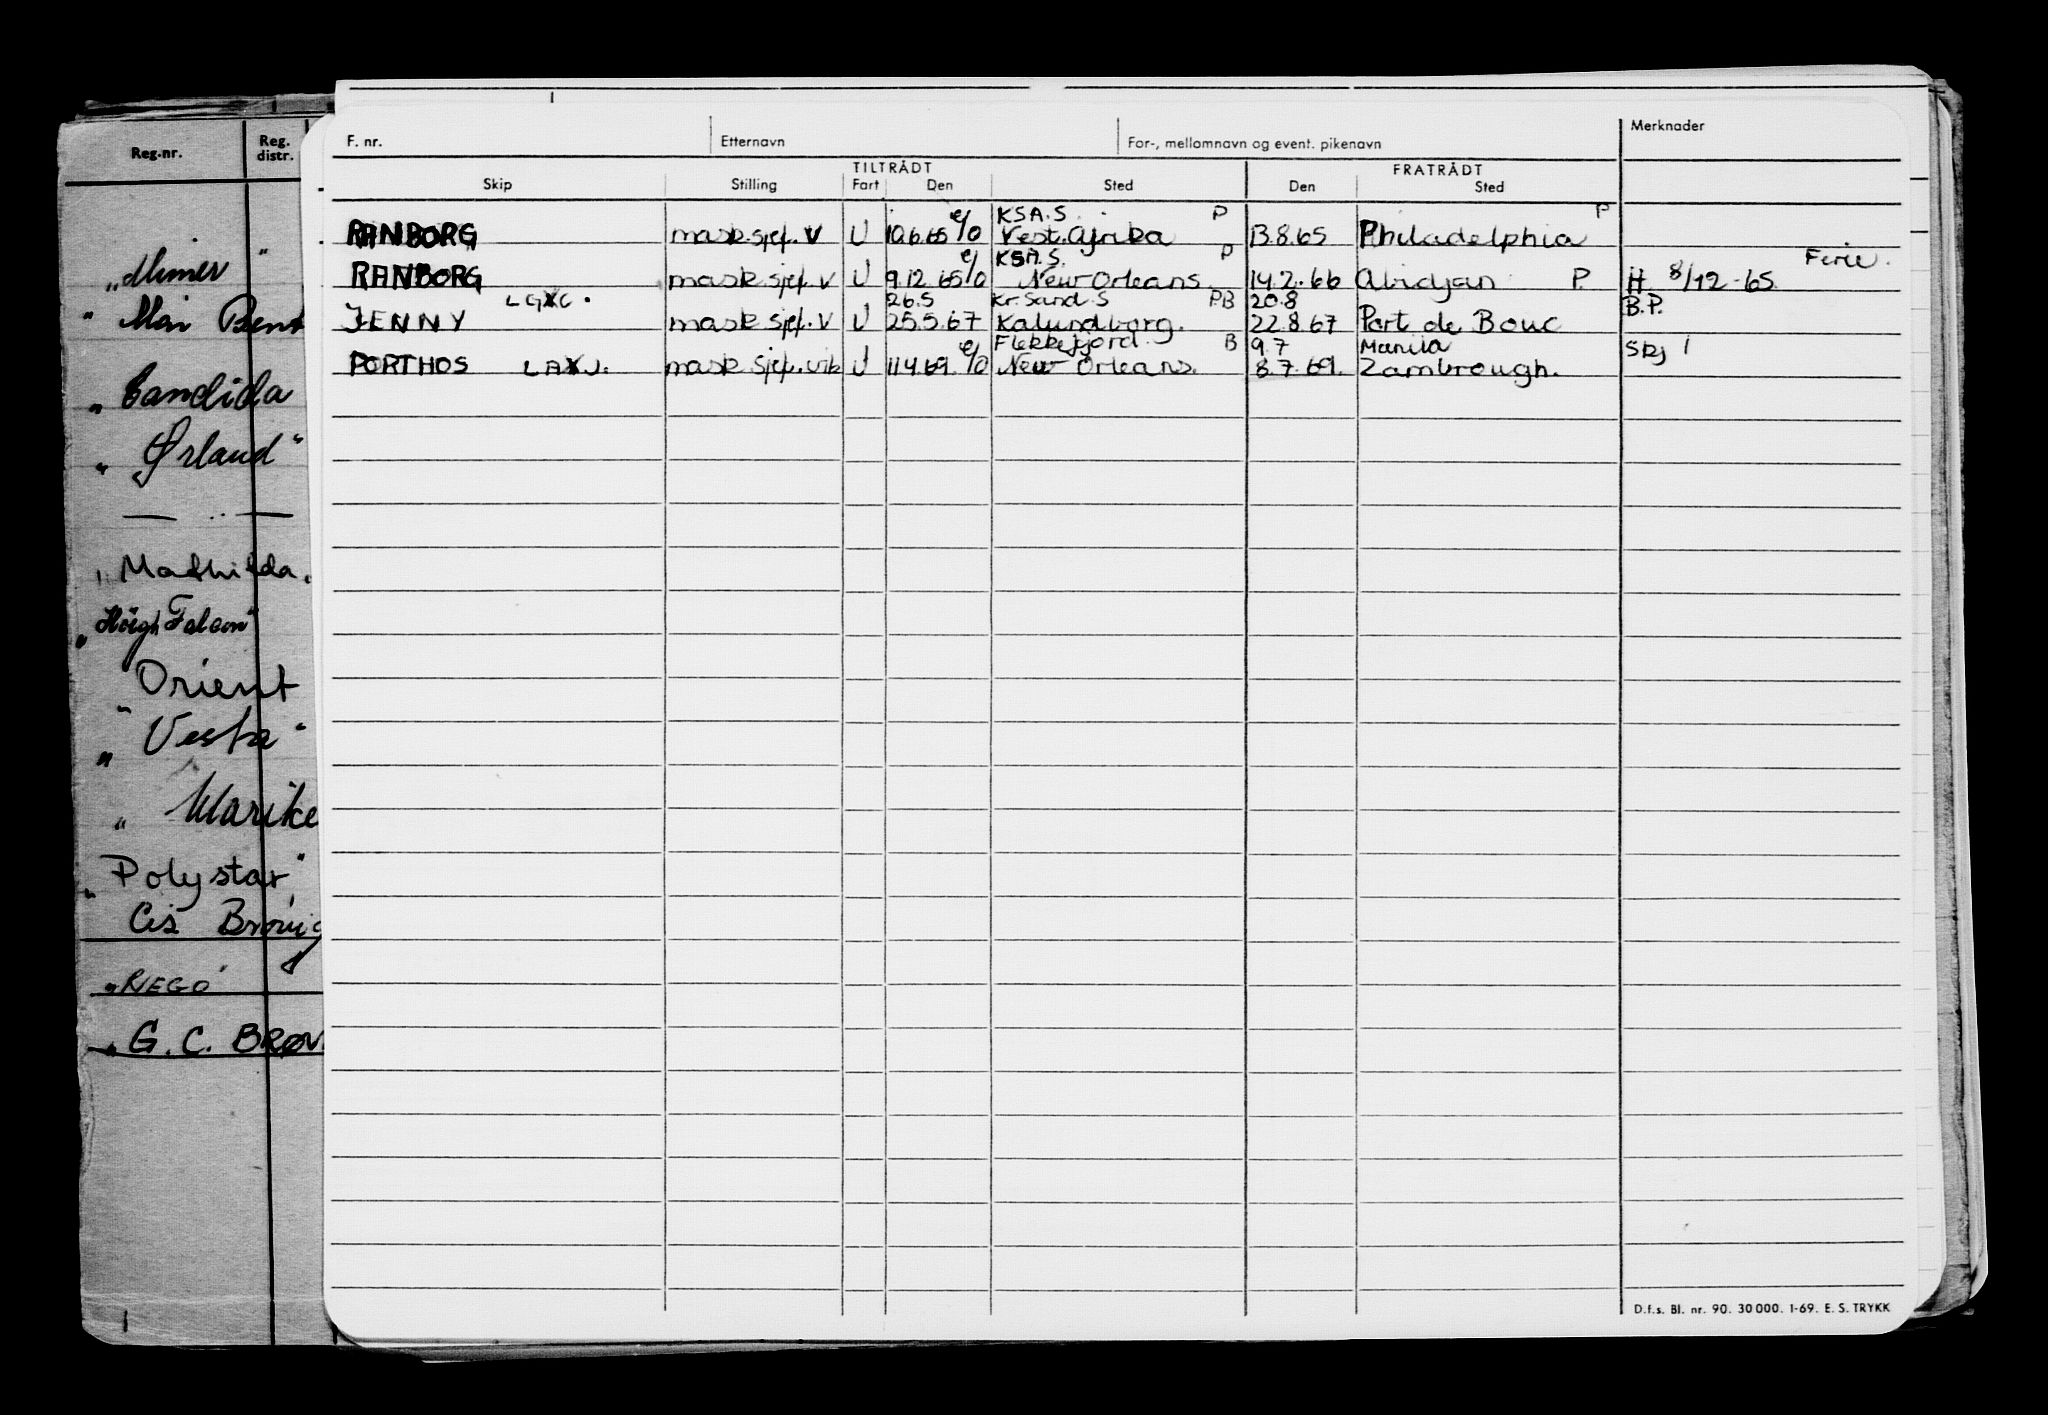 Reg.nr. Reg. distr.
"Mimer "
" Mai Bent
" Candida
" Ørland"
— .. —
" Mathilda.
"Höegh Falcon"
" Orient
" Vesta"
" Marike
"Polystar"
Cis Brøvig
"REGO"
" G. C. BRØV
F. nr. Etternavn For-, mellomnavn og event. pikenavn Merknader
TILTRÅDT FRATRÅDT
Skip Stilling Fart Den Sted Den Sted
e/ KSA.S. P P
RANBORG mask.sjef. V U 10.6.65 e/o Vest.Afrika 13.8.65 Philadelphia
KSA.S. P Ferie.
RANBORG mask.sjef. V U 9.12.65 e/o New Orleans 14.2.66 Abidjan P. H. 8/12-65
LGXC. 26.5 Kr.Sand.S PB 20.8 B.P.
JENNY mask sjef. V U 25.5.67 Kalundborg. 22.8.67 Port de Bouc
Flekkefjord. B 9.7 Manila Skj 1
PORTHOS LAXJ. mask sjef. vik U 11.4.69. e/o New Orleans. 8.7.69. Zambrough.
D.f.s. Bl. nr. 90. 30 000. 1-69. E. S. TRYKK